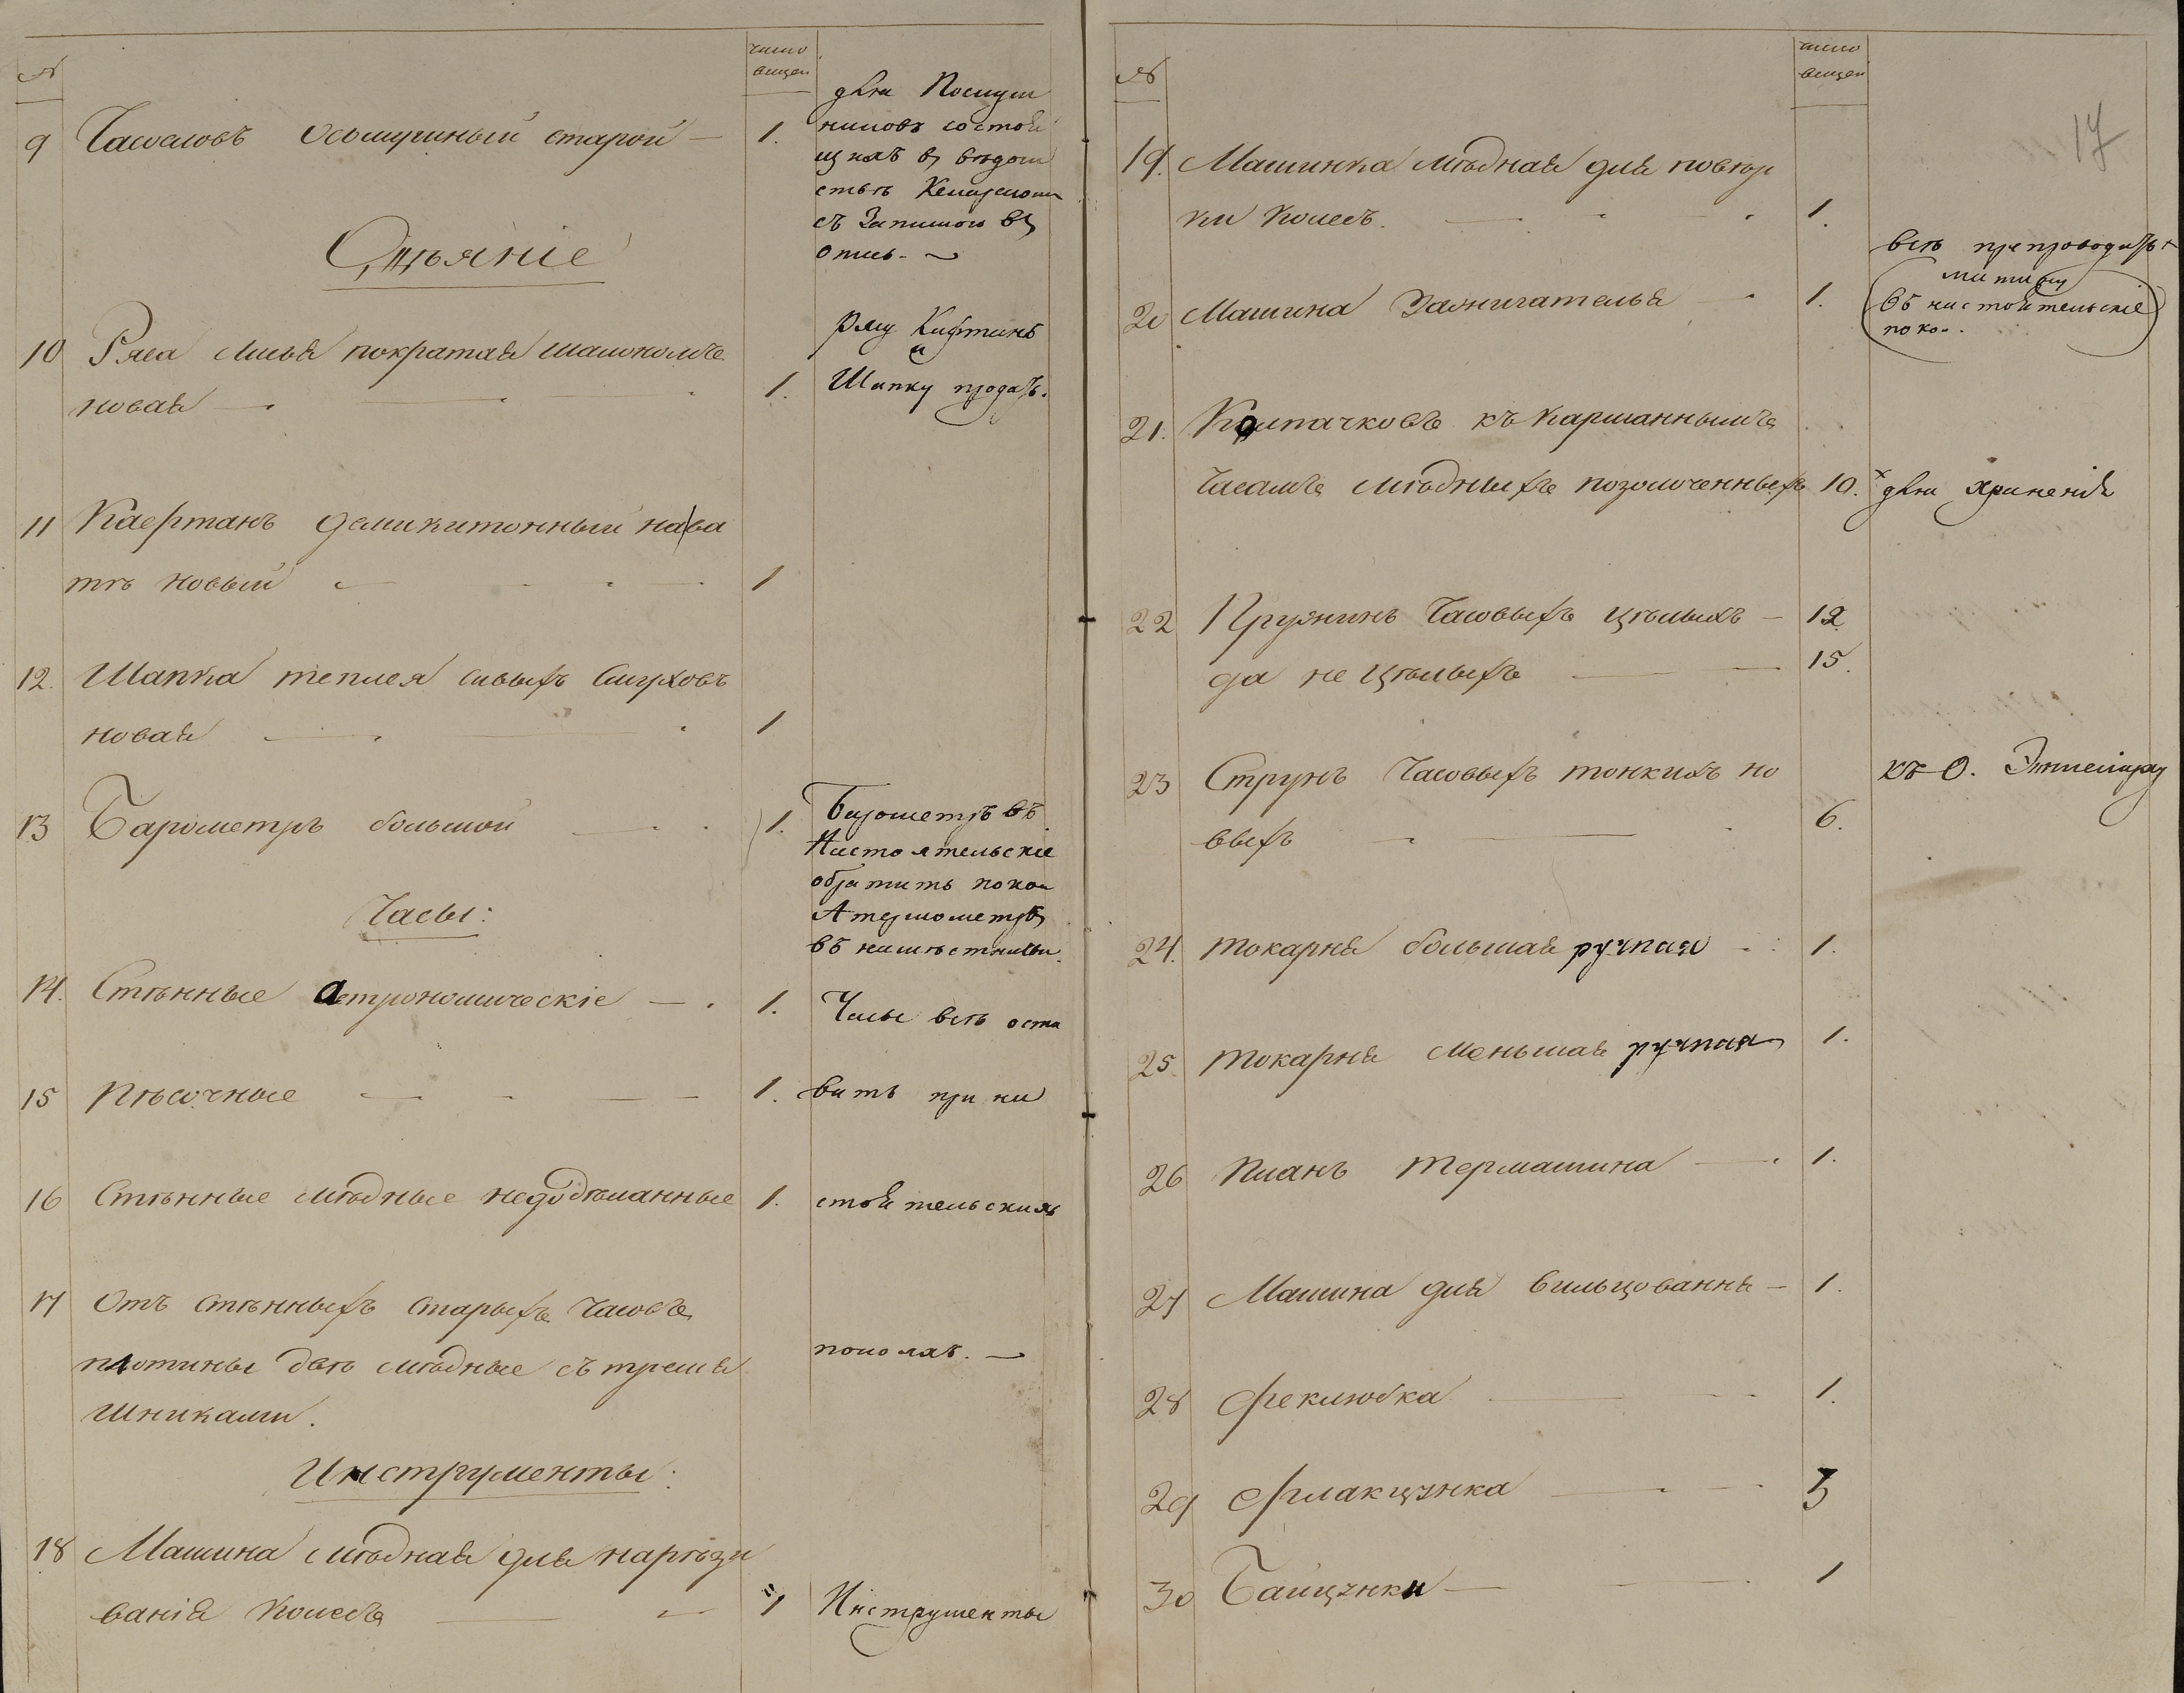 №
число
вещей
9 Часословъ осомушный старой — 1.
для Послуш
никовъ состоя
щихъ въ вѣдом
ствѣ
съ Запискою въ
опись. —
Одѣяніе
10 Ряса
новая — 1.
Рясу Кафтанъ
и
Шапку продать.
11 Кафтанъ демикитонный на ва
тѣ новый — 1
12. Шапка теплая сивыхъ смуховъ
новая — 1
13 Барометръ большой — 1.
Барометръ въ
Настоятельскіе
обратить покои
А термометръ
въ
Часы:
14. Стѣнные астрономическіе — 1.
Часы всѣ оста
15 Пѣсочные — 1.
вить при на
16 Стѣнные мѣдные недодѣланные 1.
стоятельскихъ
17 Отъ стѣнныхъ старыхъ часовъ
плотины двѣ мѣдные съ тремя
шниками.
покояхъ. —
Инструменты:
18 Машина мѣдная для нарѣзы
ванія колесъ — 1
Инструменты
№
число
вещей
17
19. Машинка мѣдная для повѣр
ки колесъ. — 1.
всѣ препроводить
20 Машина Зажигателья — 1.
въ настоятельскіе
поко..
21. Колпачковъ къ карманнымъ
Часамъ мѣдныхъ позолоченныхъ 10.
для храненія
22 Пружинъ Часовыхъ цѣлыхъ — 12
да не цѣлыхъ — 15.
23 Струнъ Часовыхъ тонкихъ но
выхъ — 6.
къ О. Эконому
24. токарня большая ручная — 1.
25. токарня меньшая ручная 1.
26 Планъ термашина — 1.
27 Машина для вильцовання — 1.
28 Феклюбка — 1.
29 Флакцынка — 3
30 Байцынки — 1